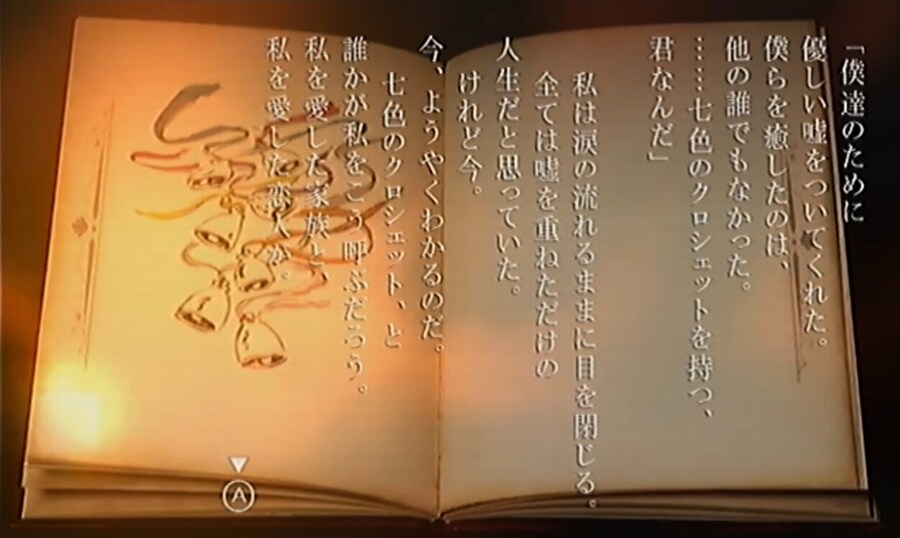 「僕達のために
優しい嘘をついてくれた。
僕らを癒したのは、
他の誰でもなかった。
……七色のクロシェットを持つ、
君なんだ」
私は涙の流れるままに目を閉じる。
全ては嘘を重ねただけの
人生だと思っていた。
けれど今。
今、ようやくわかるのだ。
七色のクロシェット、と
誰かが私をこう呼ぶだろう。
私を愛した家族と、
私を愛した恋人が。
A